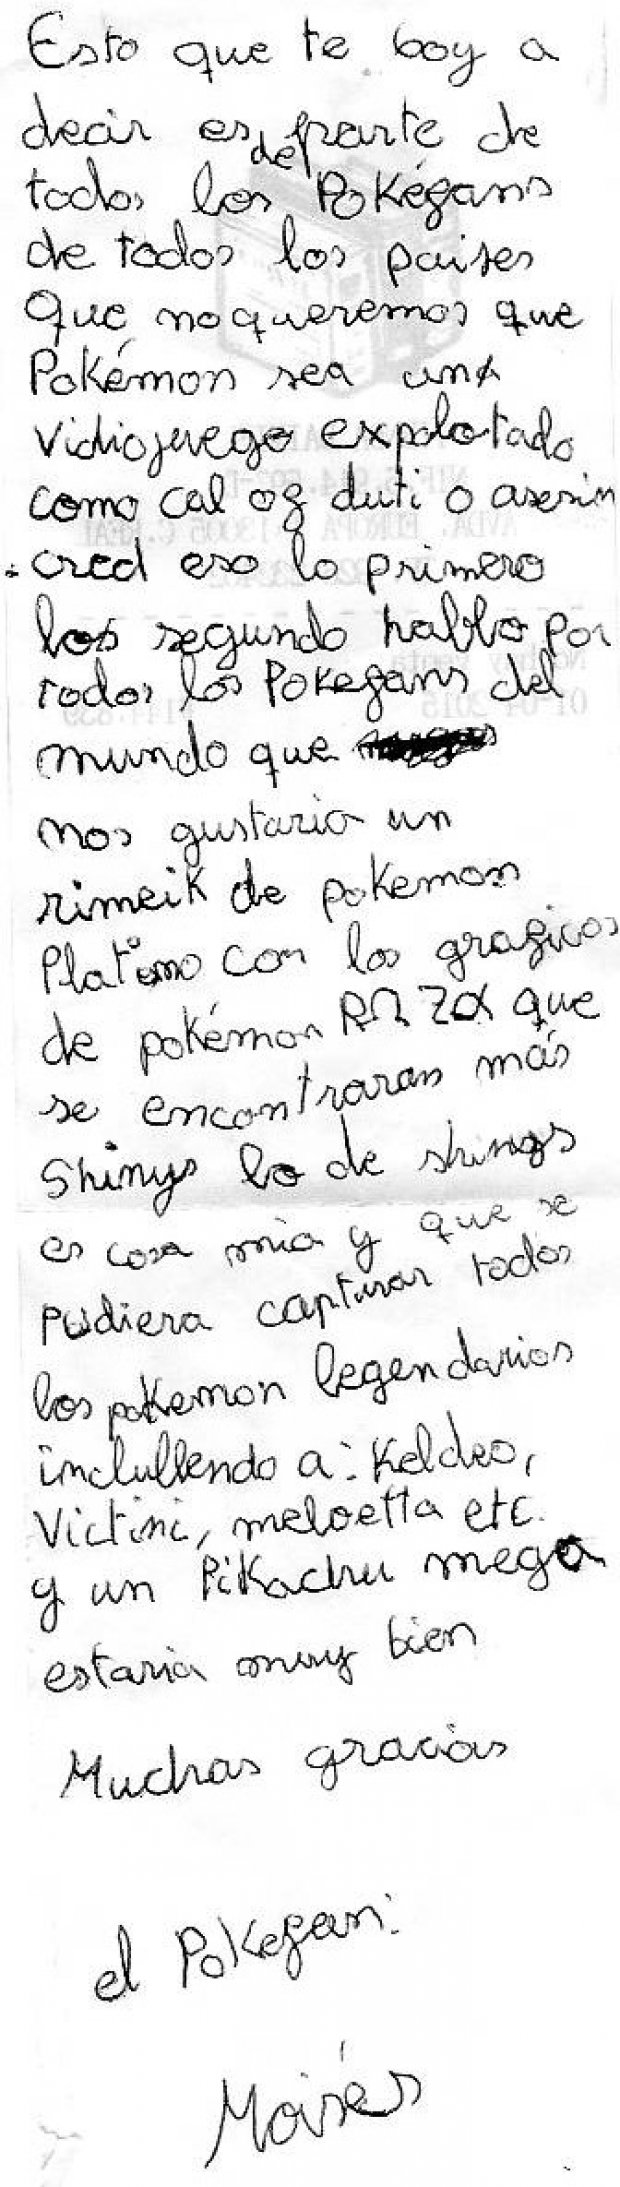 Esto que te boy a
decir es de parte de
todos los Pokéfans
de todos los paises
que no queremos que
Pokémon sea una
vidiojuego expolotado
como cal of duti o asesin
cred eso lo primero
los segundo hablo por
todos los Pokefans del
mundo que
nos gustaria un
rimeik de pokemon
Platino con los graficos
de pokémon RΩ Zα que
se encontraran más
Shinys lo de shinys
es cosa mia y que se
pudiera capturar todos
los pokemon legendarios
inclullendo a: Keldeo,
Victini, meloetta etc.
y un Pikachu mega
estaria muy bien
Muchas gracias
el Pokefan:
Moisés